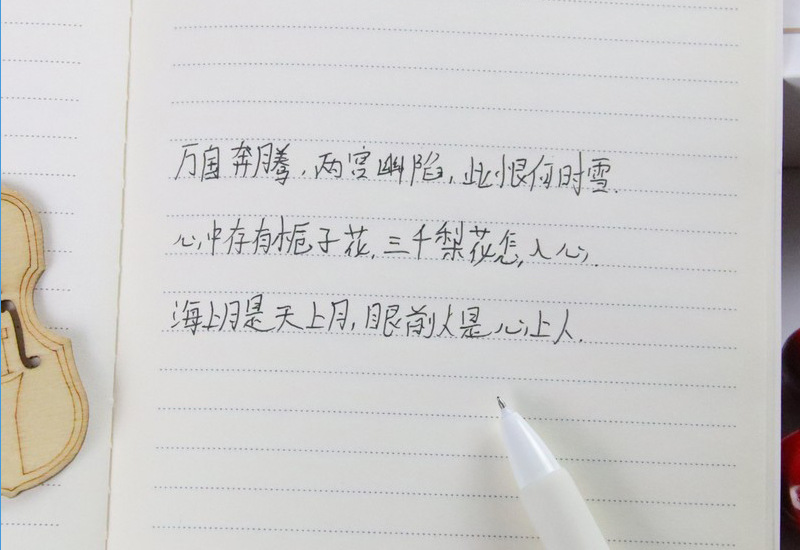 万国奔腾,两宫幽陷,此恨何时雪.
心中存有栀子花,三千梨花怎入心.
海上月是天上月,眼前人是心上人.